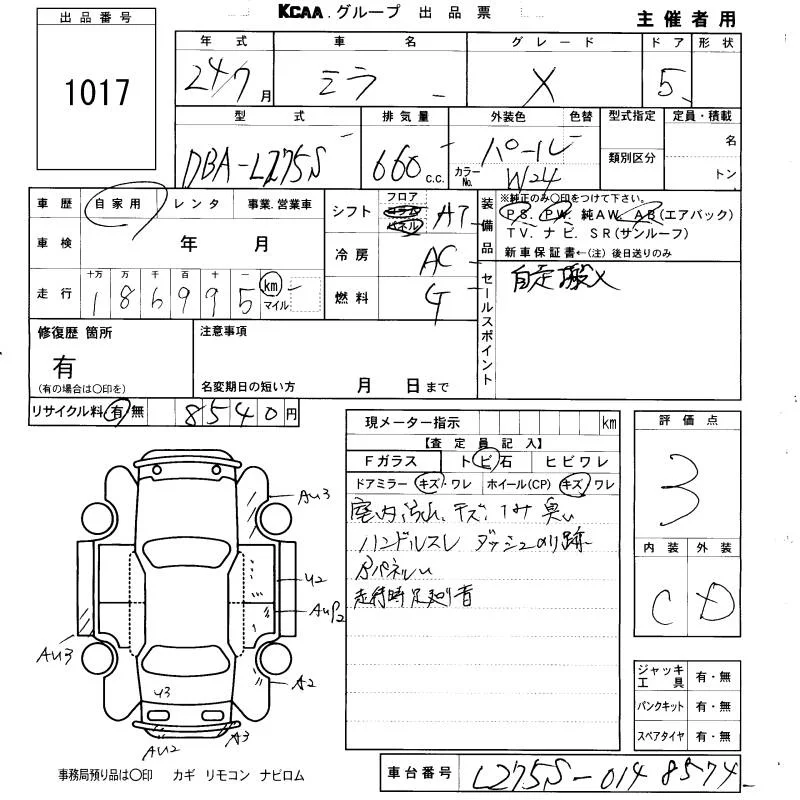 KCAA.グループ 出品票
主催者用
出品番号
1017
年式 車名 グレード ドア 形状
24/7月 ミラ X 5
型式 排気量 外装色 色替 型式指定 定員・積載
DBA-L275S 660 c.c. パール カラーNo. W24 類別区分 名 トン
車歴 自家用 レンタ 事業.営業車
車検 年 月
走行 十万 万 千 百 十 一
186995 km マイル
シフト フロア コラム パネル AT
冷房 AC
燃料 G
装備品
※純正のみ〇印をつけて下さい。
PS. PW. 純AW. AB(エアバック)
TV. ナビ. SR(サンルーフ)
新車保証書←(注) 後日送りのみ
セールスポイント
修復歴 箇所
有
(有の場合は〇印を)
注意事項
名変期日の短い方 月 日まで
リサイクル料 有 無 8540円
現メーター指示 km
【査定員記入】
Fガラス トビ石 ヒビワレ
ドアミラー キズ・ワレ ホイール(CP) キズ ワレ
室内汚れ、キズ、
ハンドルスレ ダッシュのり跡
走行時足廻り音
評価点
3
内装 外装
C D
ジャッキ工具 有・無
パンクキット 有・無
スペアタイヤ 有・無
AU3
U2
AUP2
AU3
A2
U3
A3
AU2
事務局預り品は〇印 カギ リモコン ナビロム
車台番号 L275S-0148574